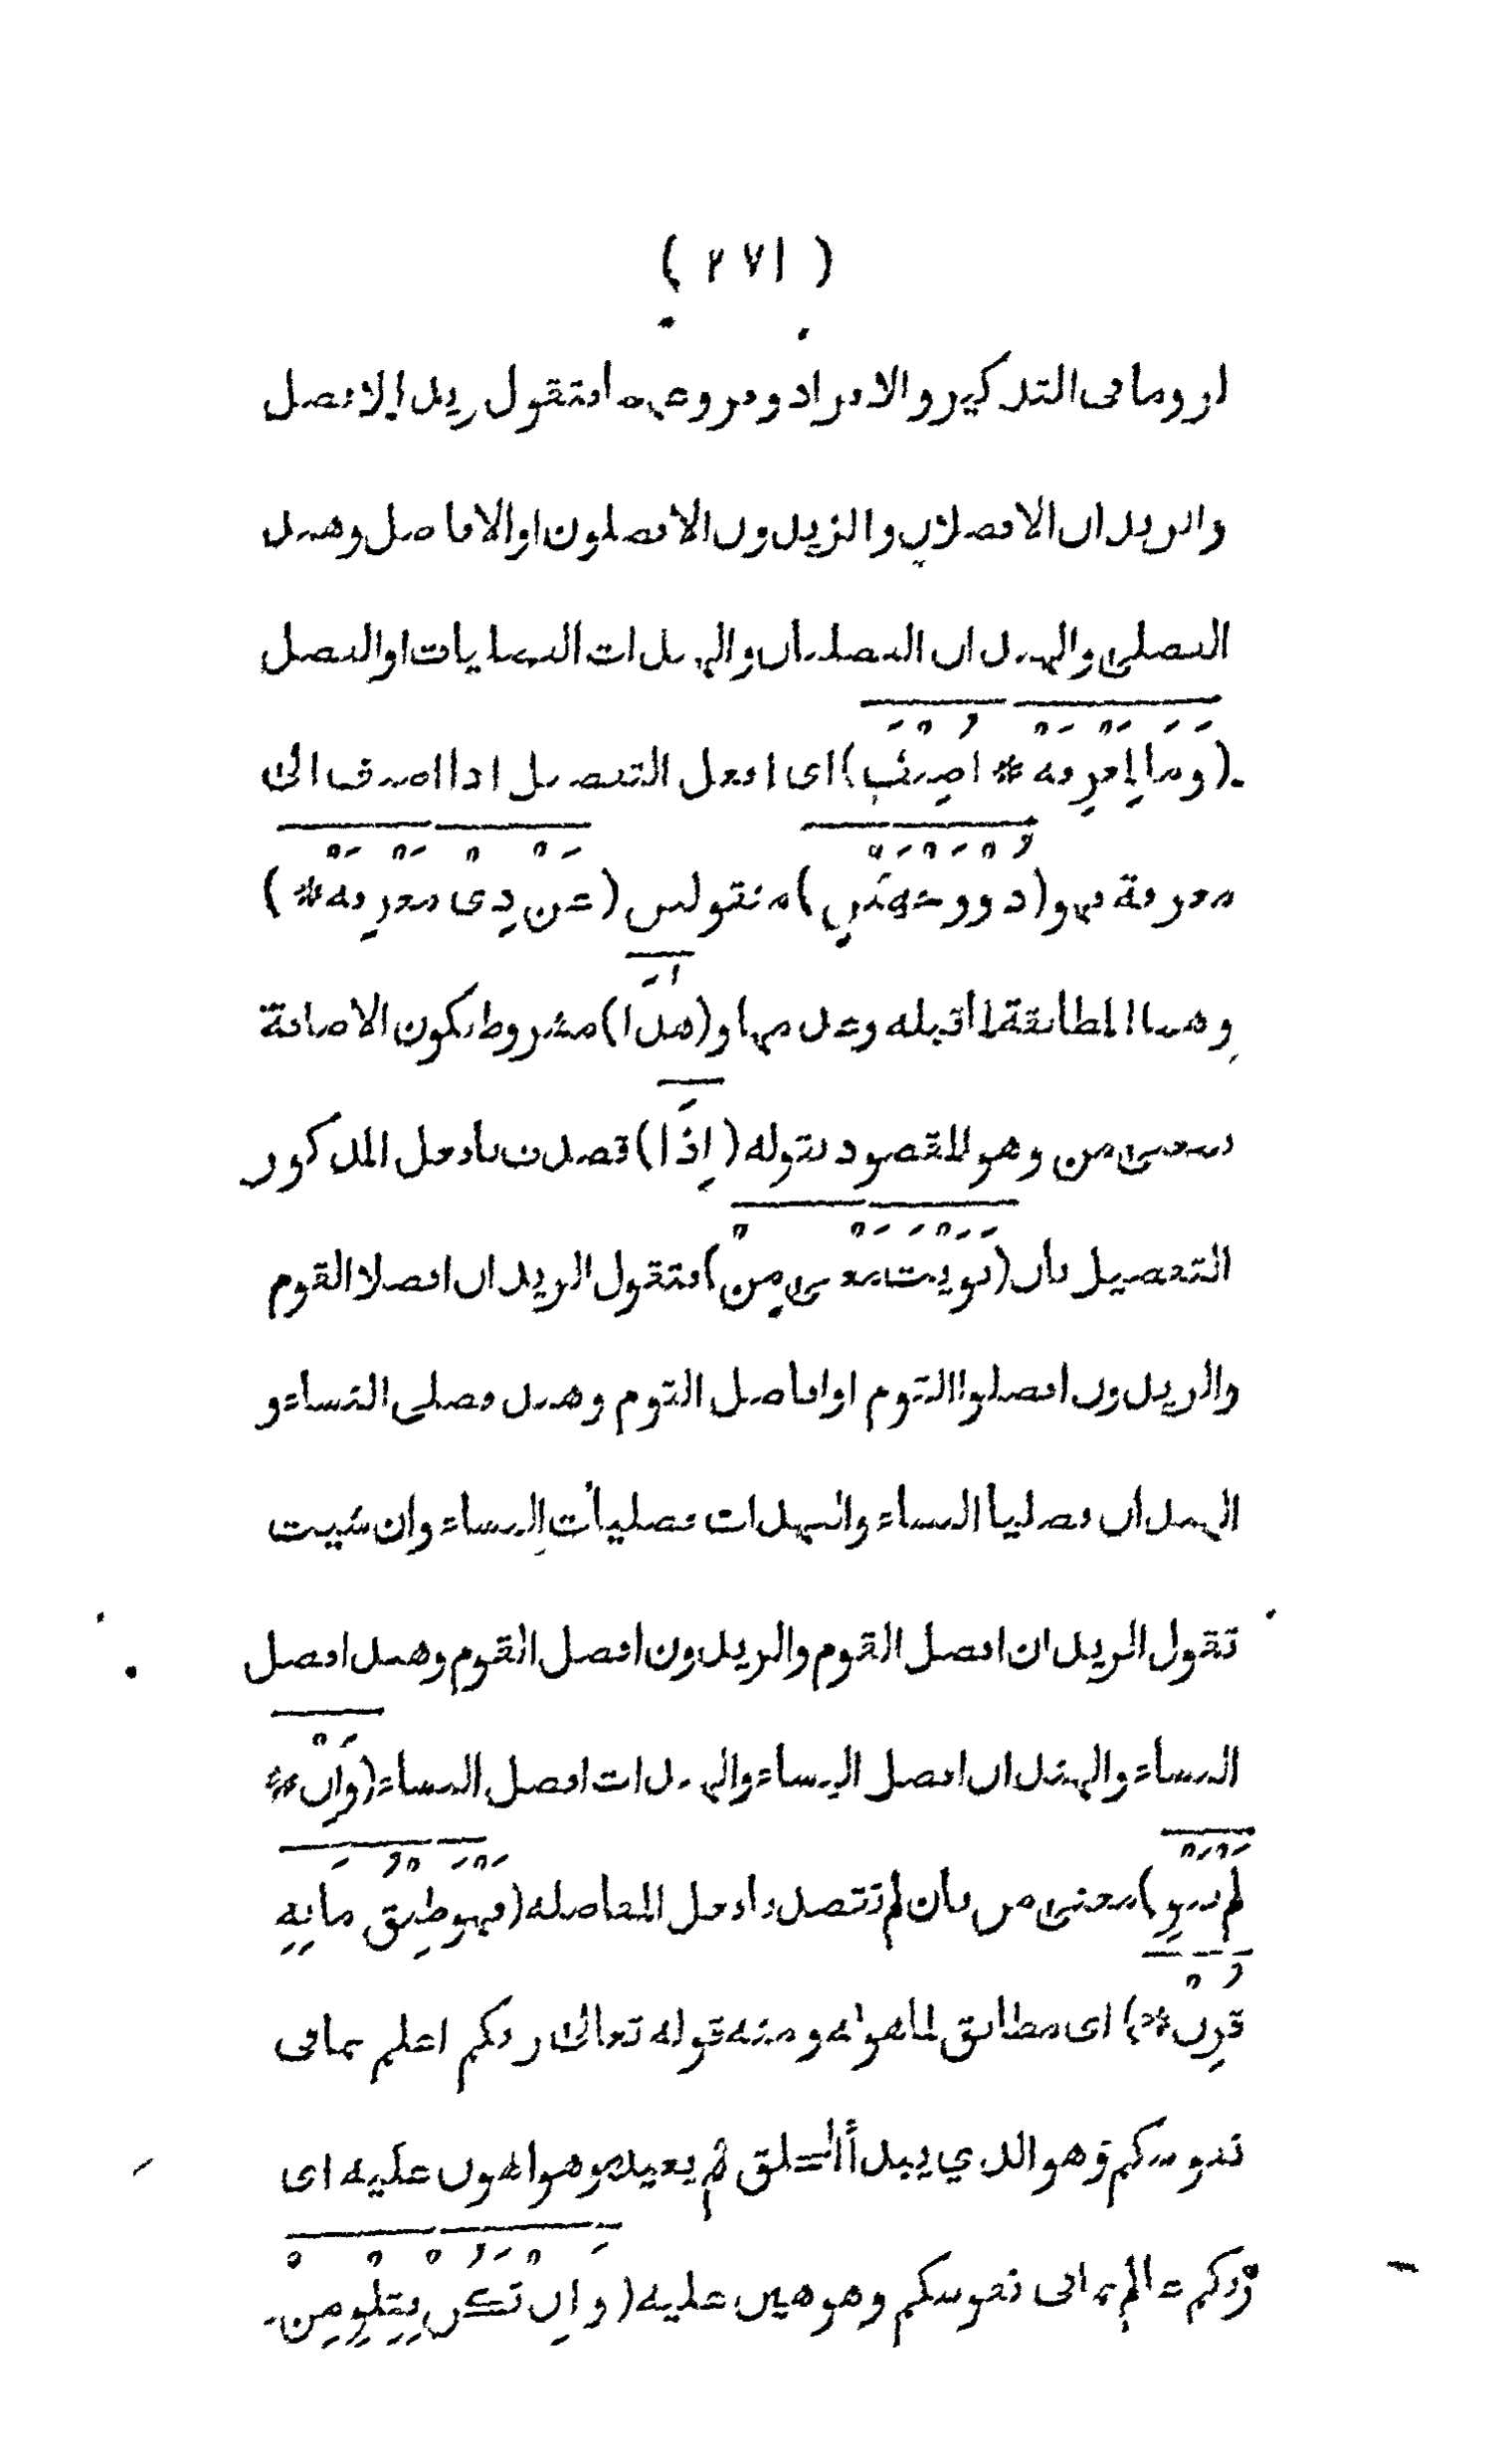 ( ٢٧١ )
لزوما فى التذكير والافراد وفروعهما فتقول زيد الافضل
والزيدان الافضلان والزيدون الافضلون او الافاضل وهند
الفضلى والهندان الفضليان والهندات الفضليات او الفضل
(وَمَا لِمَعْرِفَهْ * اُضِيْفَ) اى افعل التفضيل اذا اضيف الى
معرفة فهو (ذُوْ وَجْهَيْنِ) منقولين (عَنْ ذِىْ مَعْرِفَهْ *)
وهما المطابقة لما قبله وعدمها و(هٰذَا) مشروط بكون الاضافة
بمعنى من وهو المقصود بقوله (اِذَا) قصدت بافعل المذكور
التفضيل بان (نَوَيْتَ مَعْنَى مِنْ) فتقول الزيدان افضلا القوم
والزيدون افضلوا القوم او افاضل القوم وهند فضلى النساء و
الهندان فضليا النساء والهندات فضليات النساء وان شيت
تقول الزيدان افضل القوم والزيدون افضل القوم وهند افضل
النساء والهندان افضل النساء والهندات افضل النساء (وَاِنْ *
لَمْ تَنْوِ) معنى من بان لم تقصد بافعل المفاضله (فَهْوَ طِبْقُ مَا بِهِ
قُرِنْ *) اى مطابق لما هو له ومنه قوله تعالى ربكم اعلم بما فى
نفوسكم وهو الذي يبدأ الخلق ثم يعيده وهو اهون عليه اى
ربكم عالم بما فى نفوسكم وهو هين عليه (وَاِنْ تَكُنْ بِتِلْوِ مِنْ